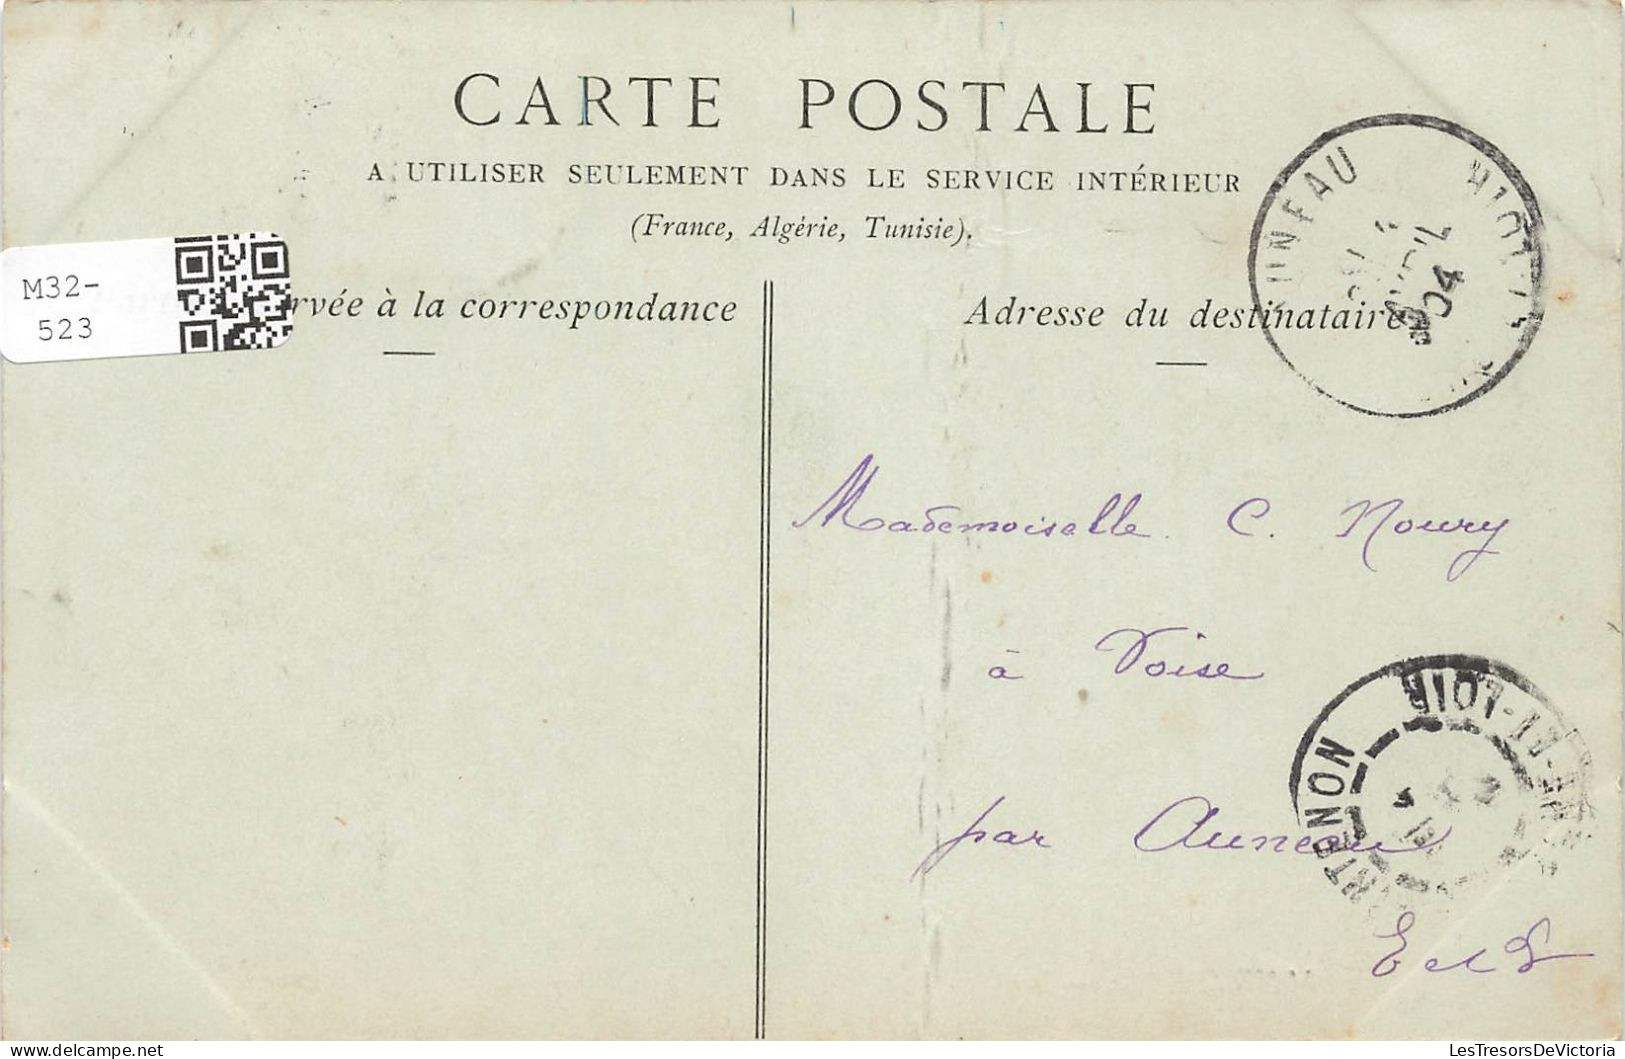 CARTE POSTALE
A UTILISER SEULEMENT DANS LE SERVICE INTÉRIEUR
(France, Algérie, Tunisie).
M32-
523
rvée à la correspondance
Adresse du destinataire
UNEAU
04
Mademoiselle C. Noury
à Voise
par Auneau
E et L
NTENON
T-LOIR
LesTresorsDeVictoria